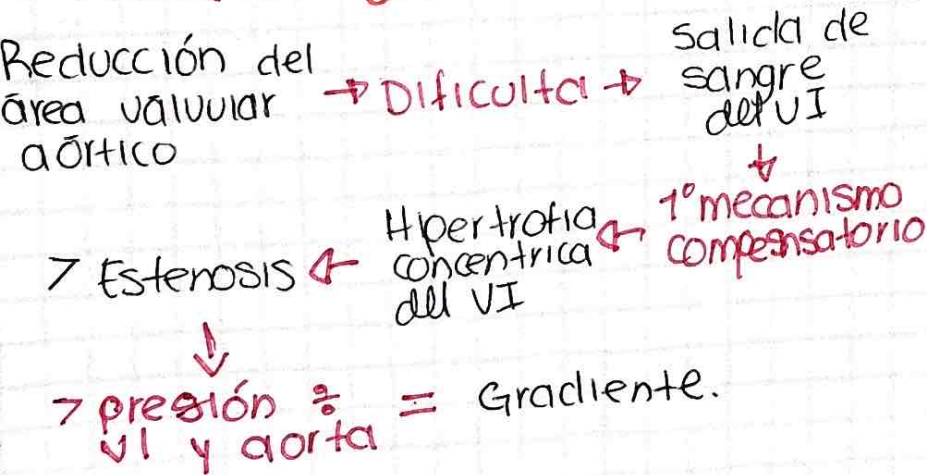 Reducción del
área valvular
aórtico
→ Dificulta →
Salida de
sangre
del VI
↓
1° mecanismo
compensatorio
←
Hipertrofia
concentrica
del VI
←
> Estenosis
↓
> presión ÷
VI y aorta
= Gradiente.